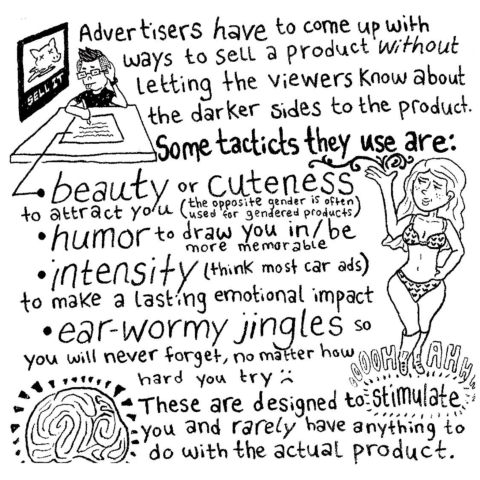 Advertisers have to come up with
ways to sell a product without
SELL IT
letting the viewers know about
the darker sides to the product.
Some tacticts they use are:
• beauty or cuteness
to attract you (the opposite gender is often
used for gendered products)
• humor to draw you in/be
more memorable
• intensity (think most car ads)
to make a lasting emotional impact
• ear-wormy jingles so
you will never forget, no matter how
hard you try :(
OOOHYEAHH
These are designed to stimulate
you and rarely have anything to
do with the actual product.